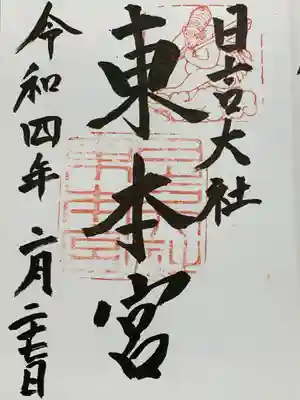 日吉大社
東本宮
令和四年六月二十七日